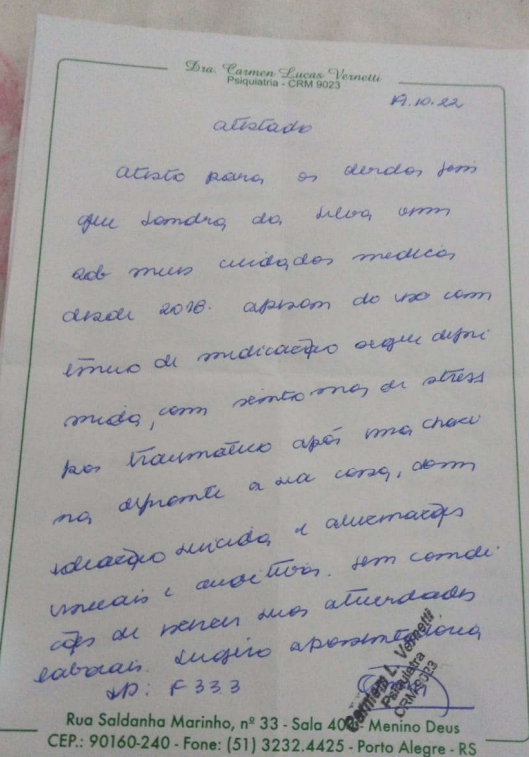 Dra. Carmen Lucas Vernetti
Psiquiatria - CRM 9023
17.10.22
Atestado
Atesto para os devidos fins
que Sandra da Silva vem
sob meus cuidados médicos
desde 2018. Apesar do uso con
tínuo de medicação segue depri
mida, com sintomas de stress
pós traumático após uma chaci
na defronte a sua casa, com
ideação suicida e alucinações
visuais e auditivas. Sem condi
ções de exercer suas atividades
laborais. Sugiro aposentadoria
F 33.3
Carmem L. Vernetti
Psiquiatra
CRM 9023
Rua Saldanha Marinho, nº 33 - Sala Menino Deus
CEP.: 90160-240 - Fone: (51) 3232.4425 - Porto Alegre - RS